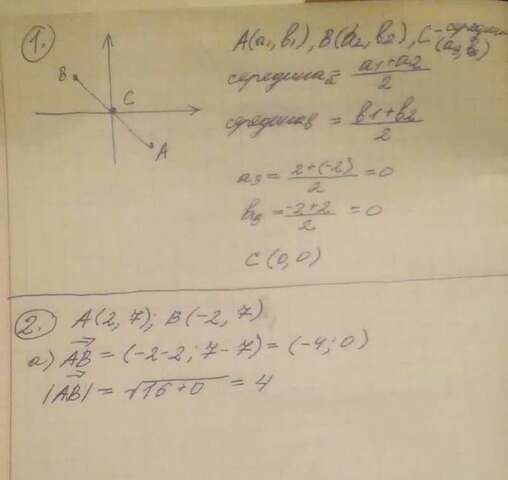 1.
B
C
A
A(a₁, b₁), B(a₂, b₂), C - середина
(a₃, b₃)
середина a = a1+a2 / 2
середина b = b1+b2 / 2
a₃ = 2+(-2) / 2 = 0
b₃ = -2+2 / 2 = 0
C (0,0)
2. A(2, 7); B(-2, 7)
a) AB = (-2-2; 7-7) = (-4; 0)
|AB| = √16+0 = 4